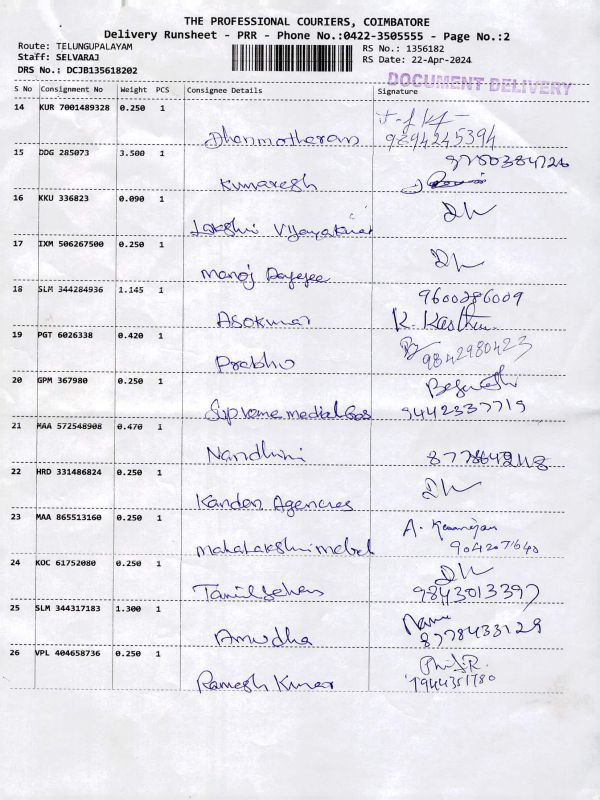 THE PROFESSIONAL COURIERS, COIMBATORE
Delivery Runsheet - PRR - Phone No.:0422-3505555 - Page No.:2
Route: TELUNGUPALAYAM
Staff: SELVARAJ
DRS No.: DCJB135618202
RS No.: 1356182
RS Date: 22-Apr-2024
DOCUMENT DELIVERY
S No Consignment No Weight PCS Consignee Details Signature
14 KUR 7001489328 0.250 1
Dhanmotharan 9894245394
15 DDG 285073 3.500 1 9750384726
Kumaresh
16 KKU 336823 0.090 1
Lakshmi Vijayakumar
17 IXM 506267500 0.250 1
Manoj
18 SLM 344284936 1.145 1 9600286009
Asokumar K. Kasthu
19 PGT 6026338 0.420 1
Prabhu 9842980423
20 GPM 367980 0.250 1
Supreme medical 9442337719
21 MAA 572548908 0.470 1
Nandhini
22 HRD 331486824 0.250 1
Kandan Agencies
23 MAA 865513160 0.250 1 A.
mahalakshmi metal 904207640
24 KOC 61752080 0.250 1
Tamilselvan 9843013397
25 SLM 344317183 1.300 1
Amudha 8778433129
26 VPL 404658736 0.250 1
Ramesh Kumar